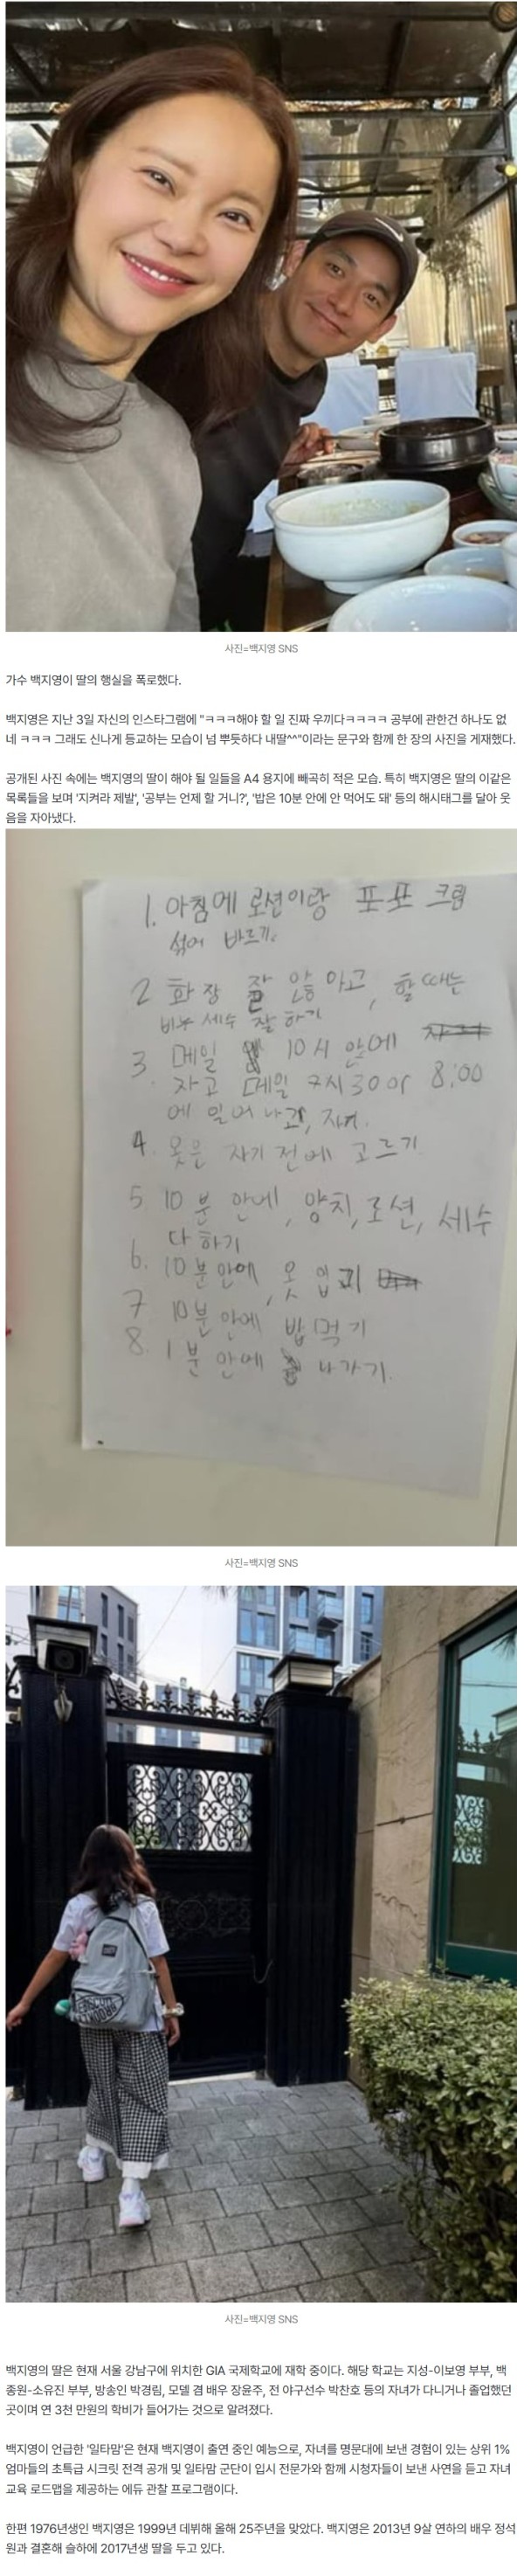 사진=백지영 SNS
가수 백지영이 딸의 행실을 폭로했다.
백지영은 지난 3일 자신의 인스타그램에 "ㅋㅋㅋ해야 할 일 진짜 우끼다ㅋㅋㅋㅋ 공부에 관한건 하나도 없
네 ㅋㅋㅋ 그래도 신나게 등교하는 모습이 넘 뿌듯하다 내딸^^"이라는 문구와 함께 한 장의 사진을 게재했다.
공개된 사진 속에는 백지영의 딸이 해야 될 일들을 A4 용지에 빼곡히 적은 모습. 특히 백지영은 딸의 이같은
목록들을 보며 '지켜라 제발', '공부는 언제 할 거니?', '밥은 10분 안에 안 먹어도 돼' 등의 해시태그를 달아 웃
음을 자아냈다.
1. 아침에 로션이랑 포포 크림
섞어 바르기.
2 화장 잘 안하고, 할때는
비누 세수 잘하기
3. 메일 10시 안에
자고 메일 7시30 or 8:00
에 일어나고, 자기.
4. 옷은 자기 전에 고르기
5. 10분 안에, 양치, 로션, 세수
다 하기
6. 10분안에, 옷 입기
7 10분 안에 밥먹기
8. 1분 안에 나가기.
사진=백지영 SNS
사진=백지영 SNS
백지영의 딸은 현재 서울 강남구에 위치한 GIA 국제학교에 재학 중이다. 해당 학교는 지성-이보영 부부, 백
종원-소유진 부부, 방송인 박경림, 모델 겸 배우 장윤주, 전 야구선수 박찬호 등의 자녀가 다니거나 졸업했던
곳이며 연 3천 만원의 학비가 들어가는 것으로 알려졌다.
백지영이 언급한 '일타맘'은 현재 백지영이 출연 중인 예능으로, 자녀를 명문대에 보낸 경험이 있는 상위 1%
엄마들의 초특급 시크릿 전격 공개 및 일타맘 군단이 입시 전문가와 함께 시청자들이 보낸 사연을 듣고 자녀
교육 로드맵을 제공하는 에듀 관찰 프로그램이다.
한편 1976년생인 백지영은 1999년 데뷔해 올해 25주년을 맞았다. 백지영은 2013년 9살 연하의 배우 정석
원과 결혼해 슬하에 2017년생 딸을 두고 있다.